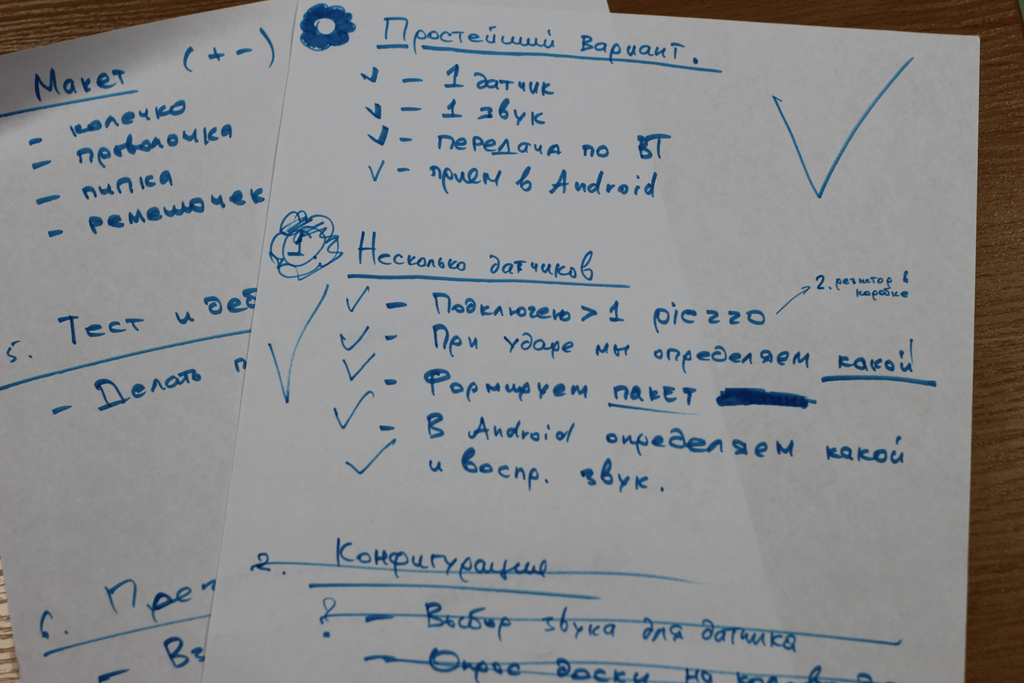 Макет (+ -)
- колечко
- проволочка
- пипка
- ремешочек
5. Тест и деб
- Делать п
6. Преп
- Вз
0 Простейший вариант.
- 1 датчик
- 1 звук
- передача по BT
- приём в Android
1 Несколько датчиков
- Подключею > 1 piezzo
2. резистор в
коробке
- При ударе мы определяем какой!
- Формируем пакет
- В Android определяем какой
и воспр. звук.
2. Конфигурация
? - Выбор звука для датчика
- Опрос доски на кол-в